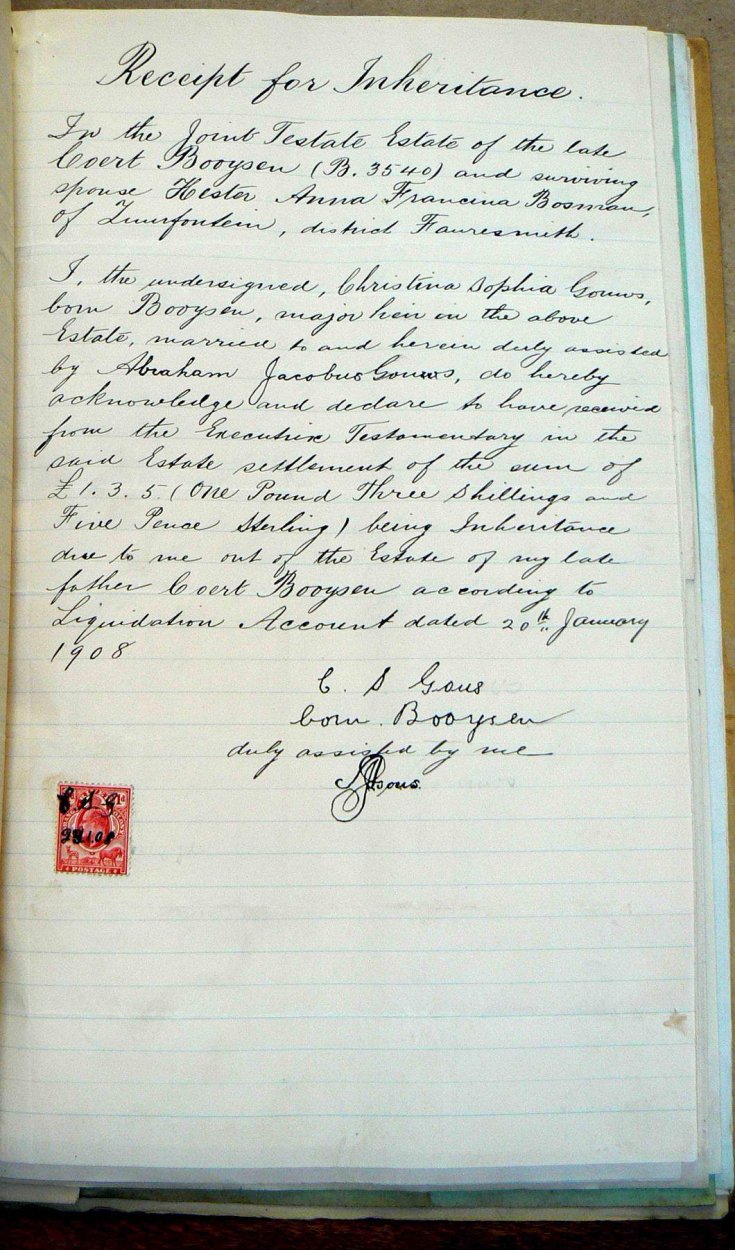 Receipt for Inheritance.
In the Joint Testate Estate of the late
Coert Booysen (B. 3540) and surviving
spouse Hester Anna Francina Bosman,
of Zuurfontein, district Fauresmith.
I, the undersigned, Christina Sophia Gouws,
born Booysen, major heir in the above
Estate, married to and herein duly assisted
by Abraham Jacobus Gouws, do hereby
acknowledge and declare to have received
from the Executrix Testamentary in the
said Estate settlement of the sum of
£1. 3. 5. (One Pound Three Shillings and
Five Pence Sterling) being Inheritance
due to me out of the Estate of my late
father Coert Booysen according to
Liquidation Account dated 20th January
1908
C. S Gous
born. Booysen
duly assisted by me
Gous.
C. S. G
1d
POSTAGE